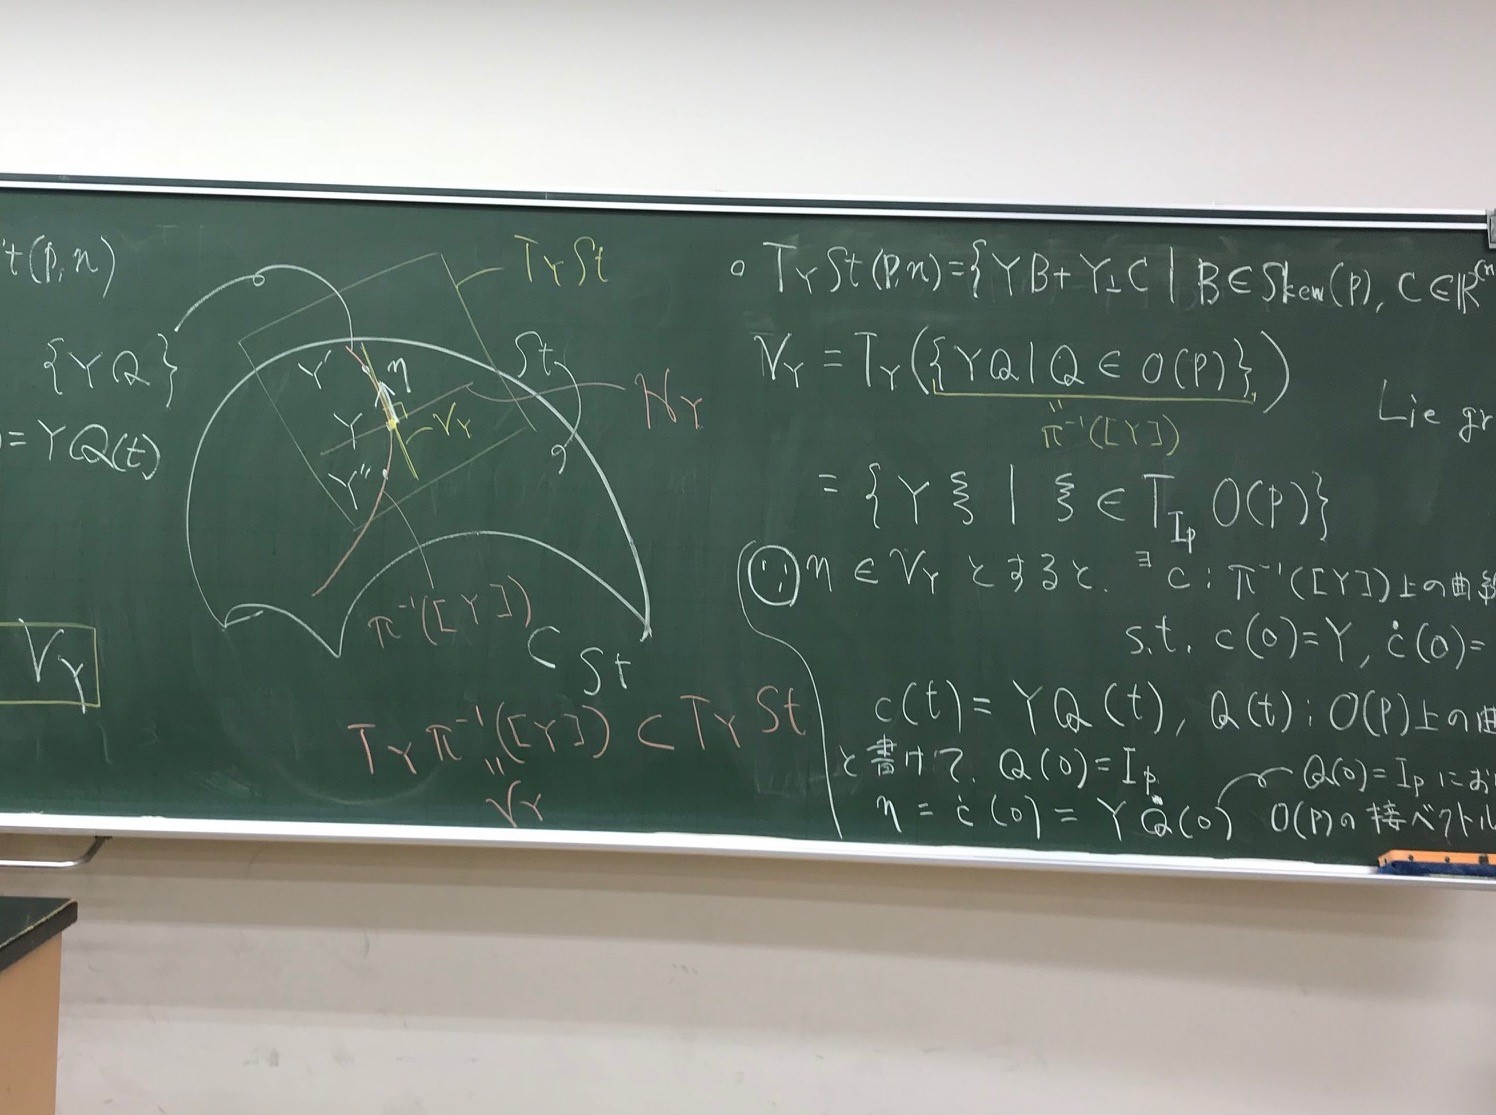 t(p,n)
{YQ}
)=YQ(t)
V_Y
T_Y St
St
H_Y
Y'
η
Y
V_Y
Y''
π⁻¹([Y])
⊂ St
T_Y π⁻¹([Y]) ⊂ T_Y St
"
V_Y
○ T_Y St(p,n)={YB+Y⊥C | B∈Skew(p), C∈ℝ^(n
V_Y = T_Y({YQ|Q∈O(p)})
"
π⁻¹([Y])
Lie gr
={Yξ | ξ∈T_{I_p} O(p)}
η∈V_Yとすると、∃c:π⁻¹([Y])上の曲線
s.t. c(0)=Y, ċ(0)=
c(t)=YQ(t), Q(t);O(p)上の曲
と書けて、Q(0)=I_p
Q(0)=I_pにお
η=ċ(0)=YQ̇(0)
O(p)の接ベクトル